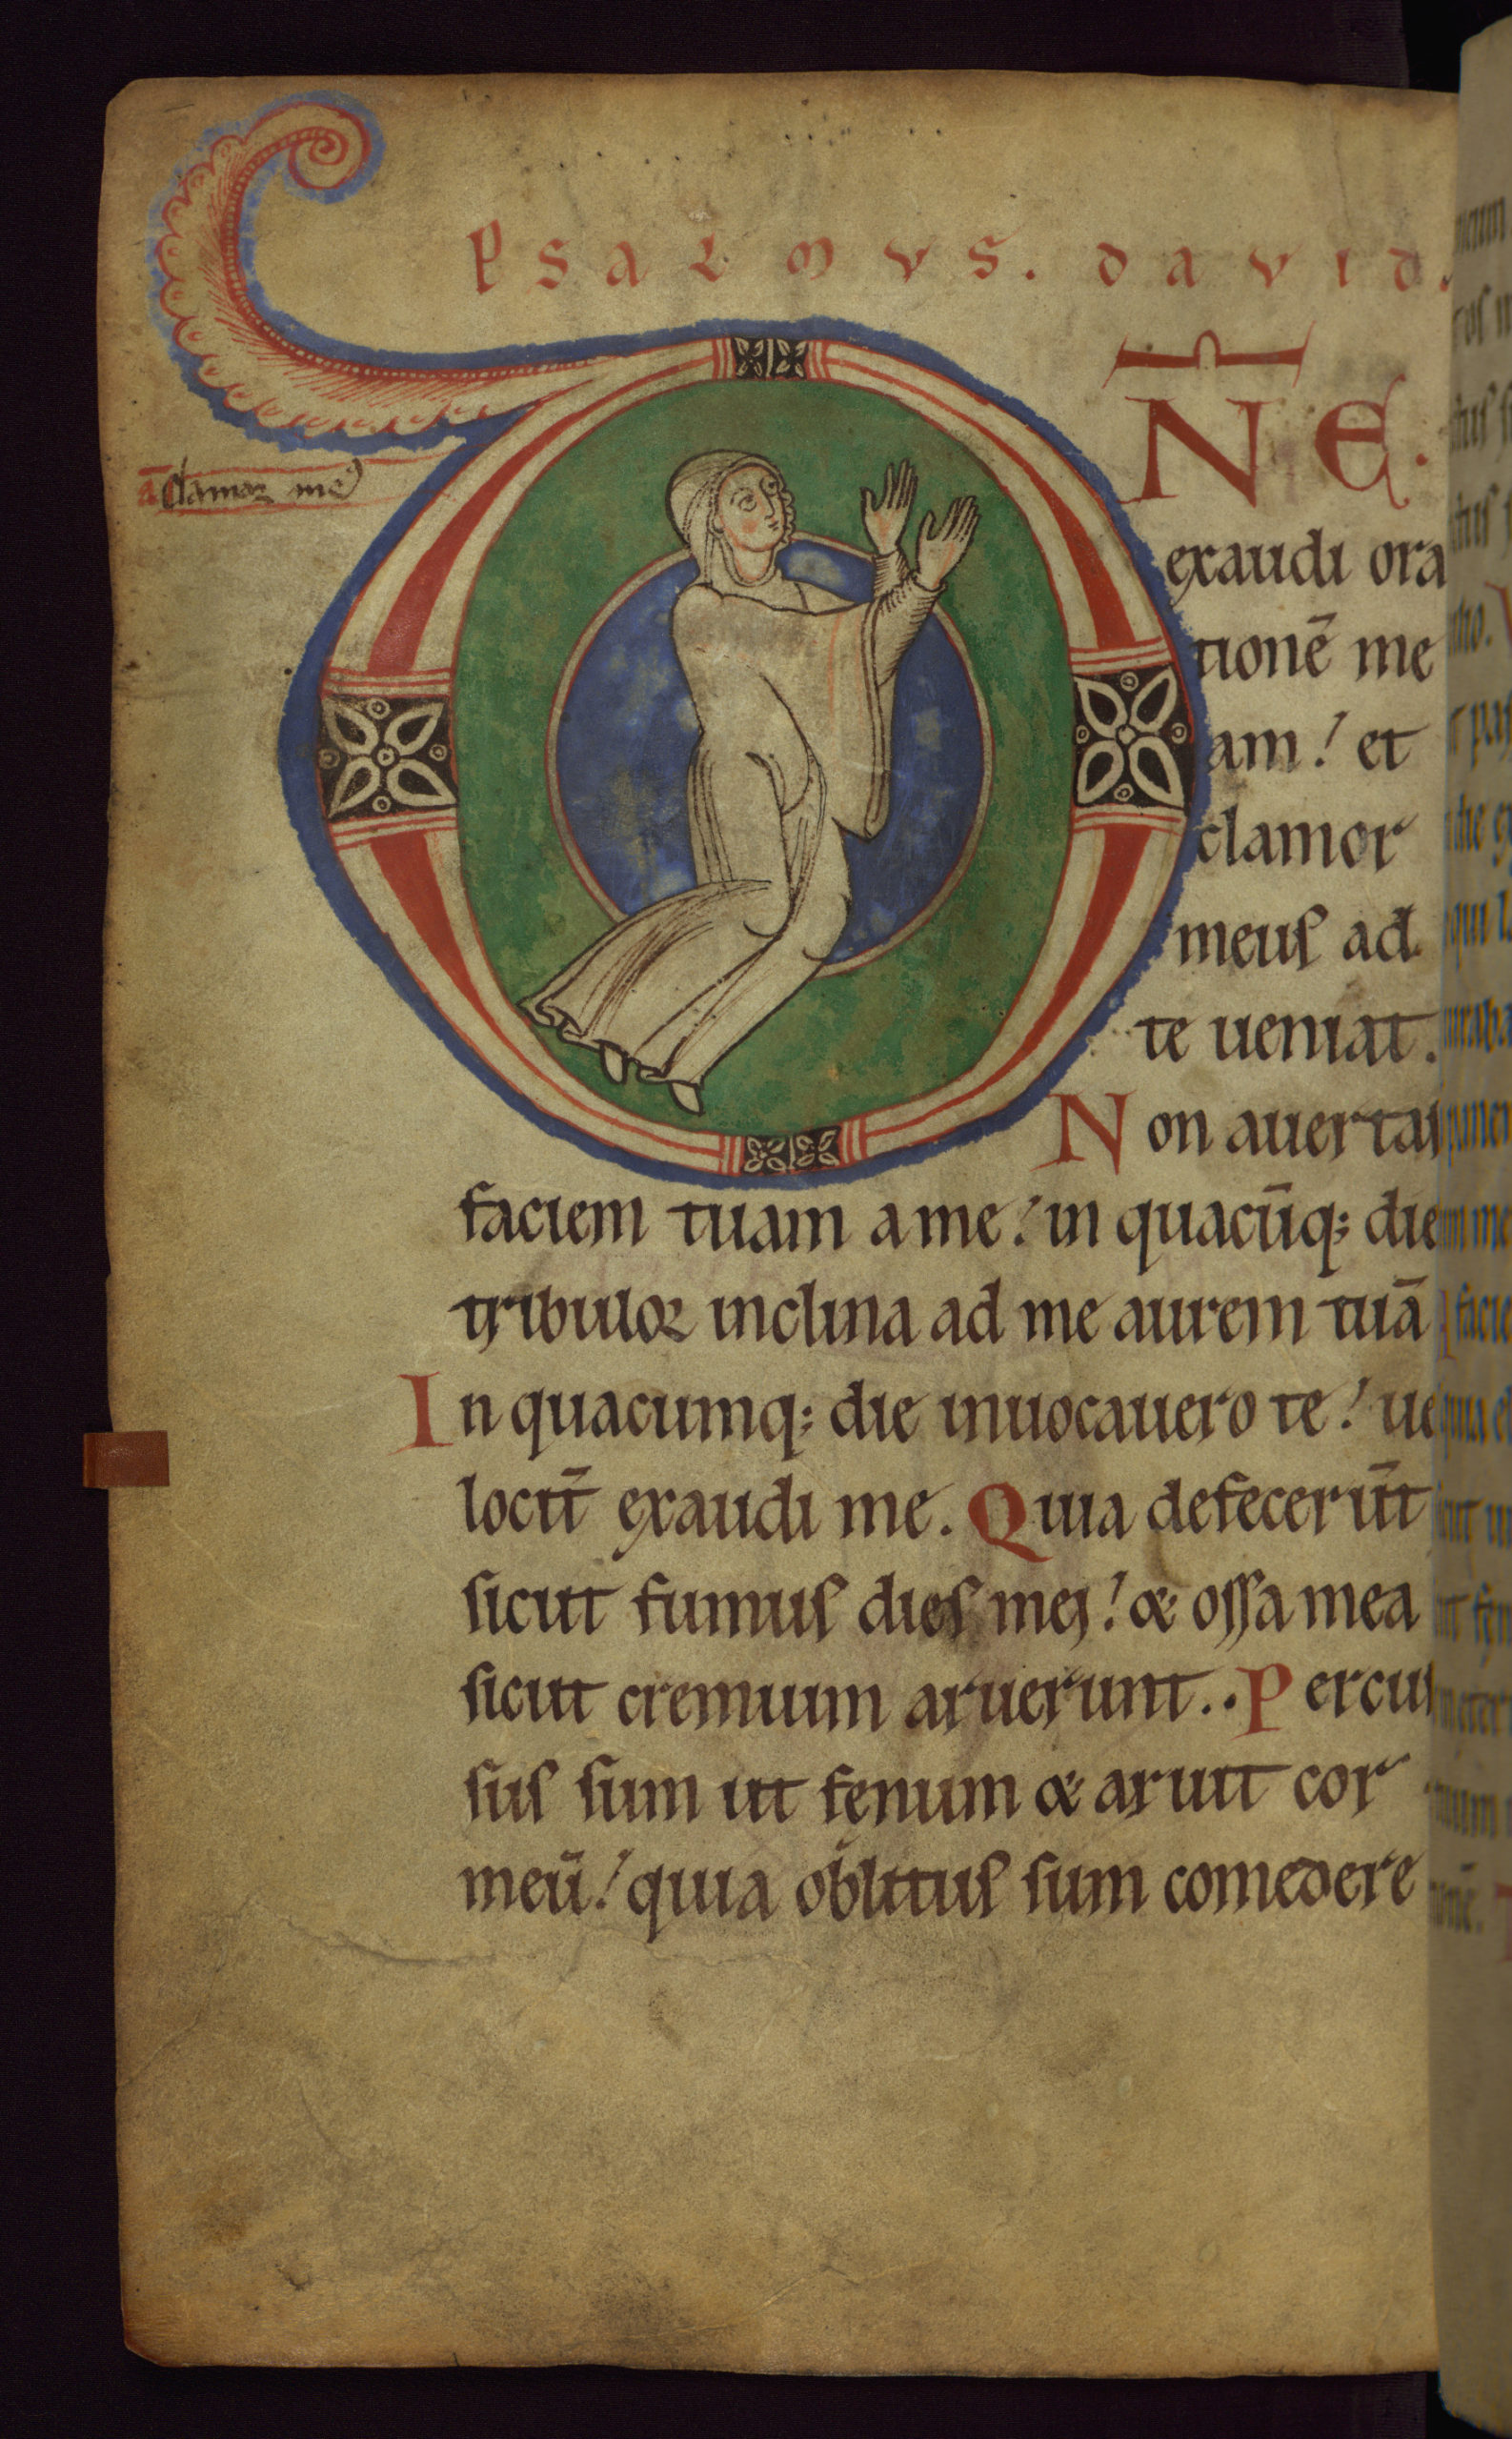 PSALMVS. DAVID.
DN̄E.
ā clamor me
exaudi ora
tionē me
am! et
clamor
meus ad
te ueniat.
Non auertas
faciem tuam a me! in quacūq; die
tribulor inclina ad me aurem tuā
In quacumq; die inuocauero te! ue
locit̄ exaudi me. Quia defecerūt
sicut fumus dies mei! & ossa mea
sicut cremium aruerunt.. Percus
sus sum ut fenum & aruit cor
meū! quia oblitus sum comedere